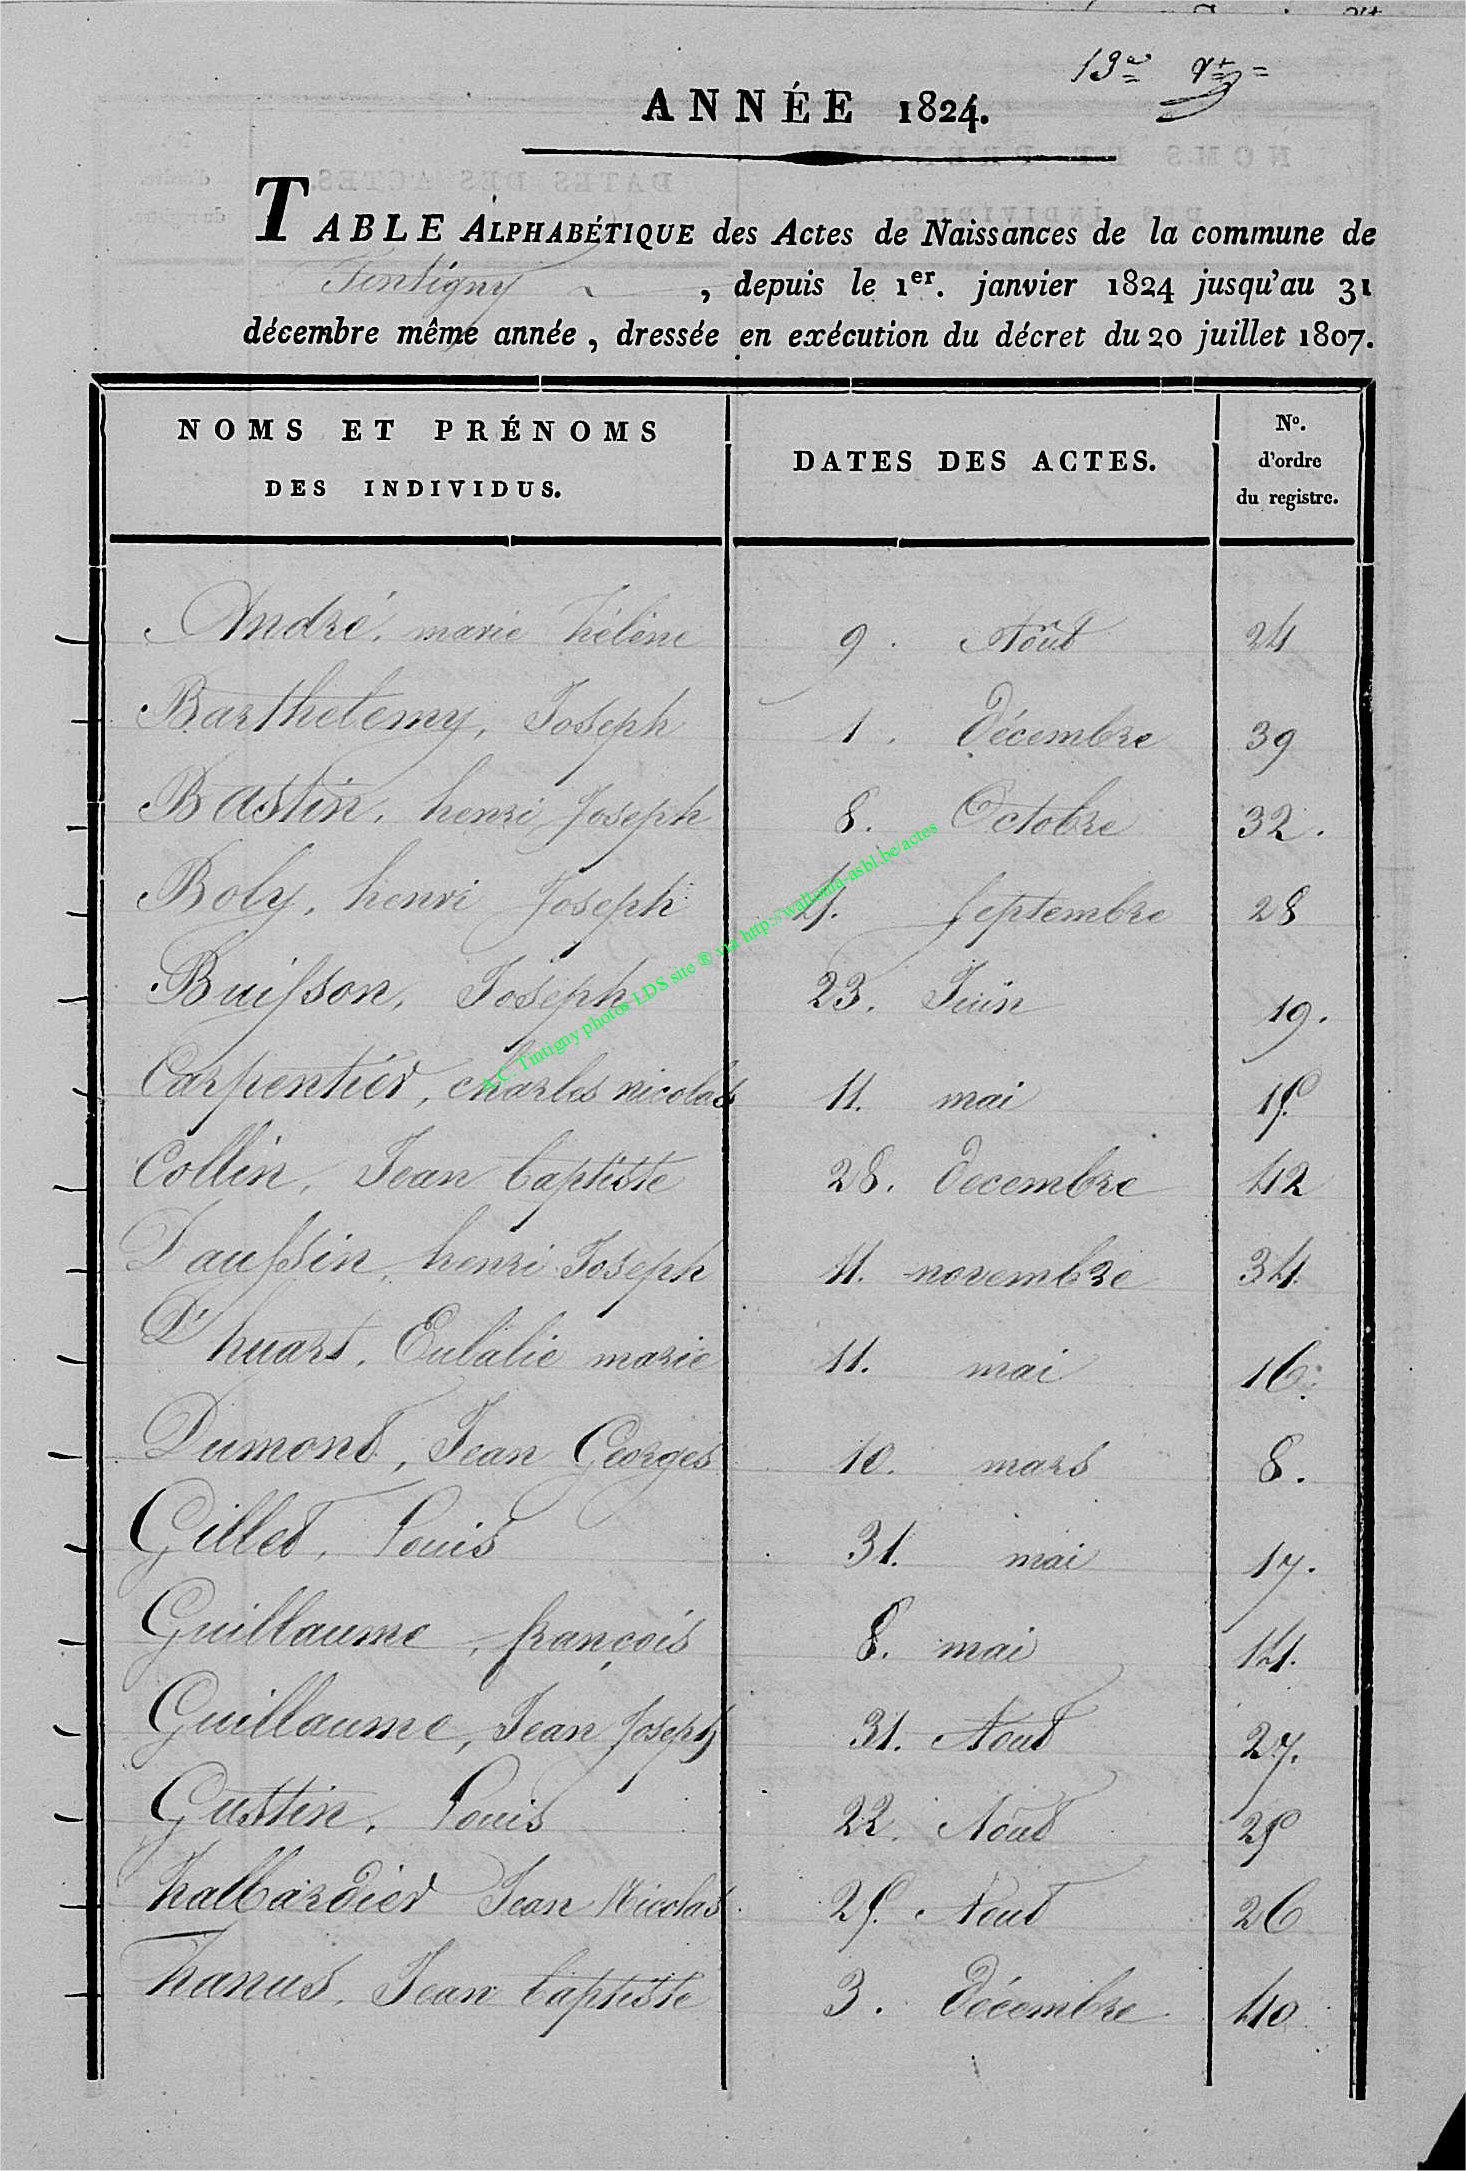 13e
ANNÉE 1824.
TABLE ALPHABÉTIQUE des Actes de Naissances de la commune de
Tintigny, depuis le 1er. janvier 1824 jusqu'au 31
décembre même année, dressée en exécution du décret du 20 juillet 1807.
NOMS ET PRÉNOMS DES INDIVIDUS. DATES DES ACTES. No. d'ordre du registre.
André, marie hélène 9. Aoüt 24
Barthelemy, Joseph 1. Décembre 39
Bastin, henri Joseph 8. Octobre 32.
Boly, henri Joseph 4. Septembre 28
Buisson, Joseph 23. Juin 19.
Carpentier, charles nicolas 11. mai 15
Collin, Jean baptiste 28. decembre 42
Daussin, henri Joseph 11. novembre 34.
D'huart, Eulalie marie 11. mai 16.
Dumont, Jean Georges 10. mars 8.
Gillet, Louis 31. mai 17.
Guillaume, françois 8. mai 14.
Guillaume, Jean Joseph 31. Aout 27.
Gustin, Louis 22. Aout 25
halbardier Jean Nicolas 25. Aout 26
hanus, Jean baptiste 3. Décembre 40
A.C. Tintigny photos LDS site ® via http://wallonia-asbl.be/actes